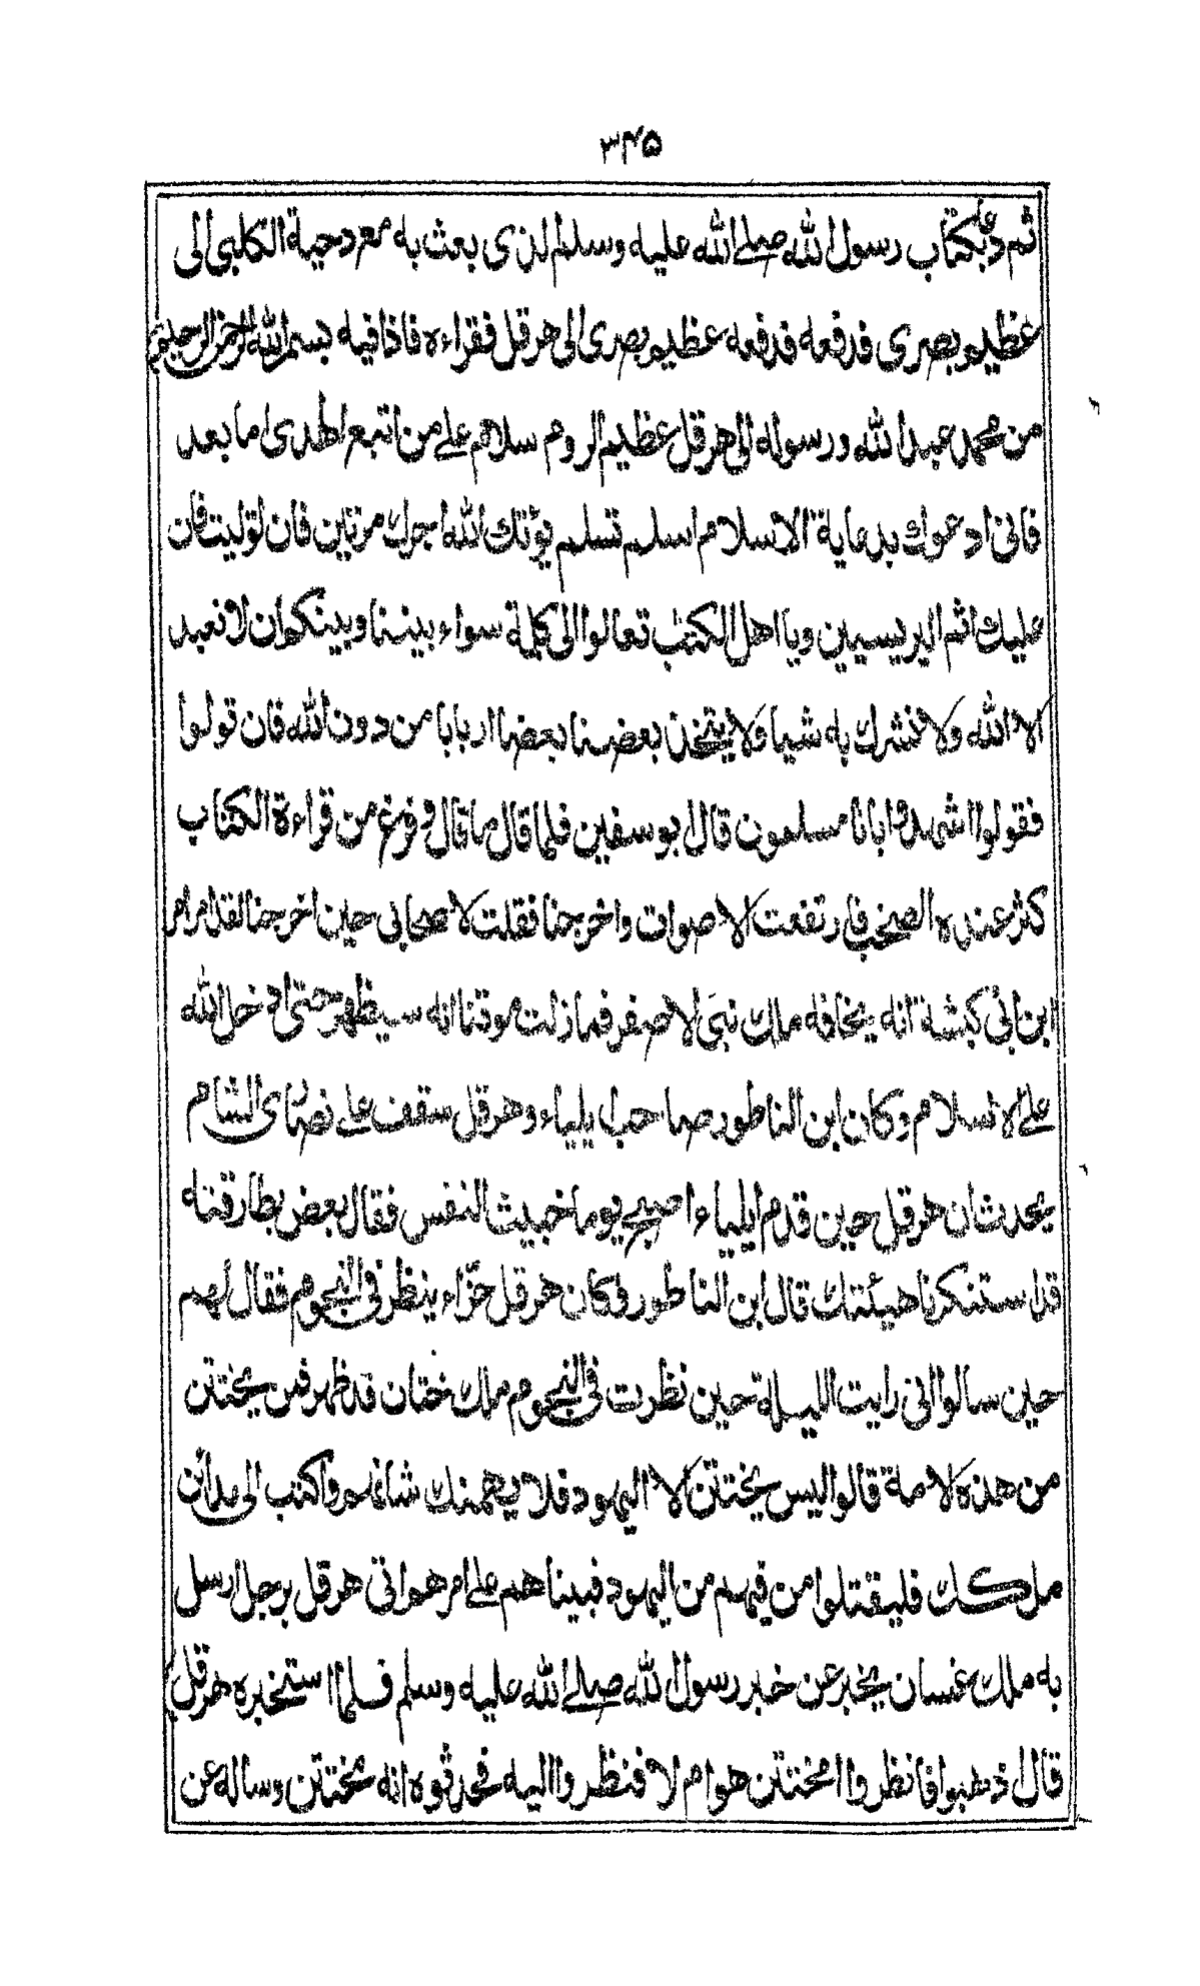 ۳۴۵
ثم دعا بكتاب رسول الله صلے الله عليه وسلم الذى بعث به مع دحية الكلبي الى
عظيم بصرى فدفعه فدفعه عظيم بصرى الى هرقل فقراءه فاذا فيه بسم الله الرحمن الرحيم
من محمد عبد الله ورسوله الى هرقل عظيم الروم سلام علے من اتبع الهدى اما بعد
فانى ادعوك بدعاية الاسلام اسلم تسلم يؤتك الله اجرك مرتين فان توليت فان
عليك اثم اليريسيين ويا اهل الكتٰب تعالوا الى كلمة سواء بيننا وبينكم ان لا نعبد
الا الله ولا نشرك به شيا ولا يتخذ بعضنا بعضا اربابا من دون الله فان تولوا
فقولوا اشهدوا بانا مسلمون قال ابو سفين فلما قال ما قال وفرغ من قراءة الكتاب
كثر عنده الصخب فارتفعت الاصوات واخرجنا فقلت لاصحابى حين اخرجنا لقد امر امر
ابن ابى كبشة انه يخافه ملك بنى الاصفر فما زلت موقنا انه سيظهر حتى ادخل الله
علے الاسلام وكان ابن الناطور صاحب ايلياء وهرقل سقف علے نصارى الشام
يحدث ان هرقل حين قدم ايلياء اصبح يوما خبيث النفس فقال بعض بطارقته
قد استنكرنا هيئتك قال ابن الناطور وكان هرقل حزّاء ينظر فى النجوم فقال لهم
حين سالوا انى رايت الليلة حين نظرت فى النجوم ملك ختان قد ظهر فمن يختتن
من هذه الامة قالوا ليس يختتن الا اليهود فلا يهمنك شانهم واكتب الى مدائن
ملكك فليقتلوا من فيهم من اليهود فبينا هم علے امرهم اتى هرقل برجل ارسل
به ملك غسان يخبر عن خبر رسول الله صلے الله عليه وسلم فلما استخبره هرقل
قال اذهبوا فانظروا امختتن هو ام لا فنظروا اليه فحدثوه انه مختتن وساله عن